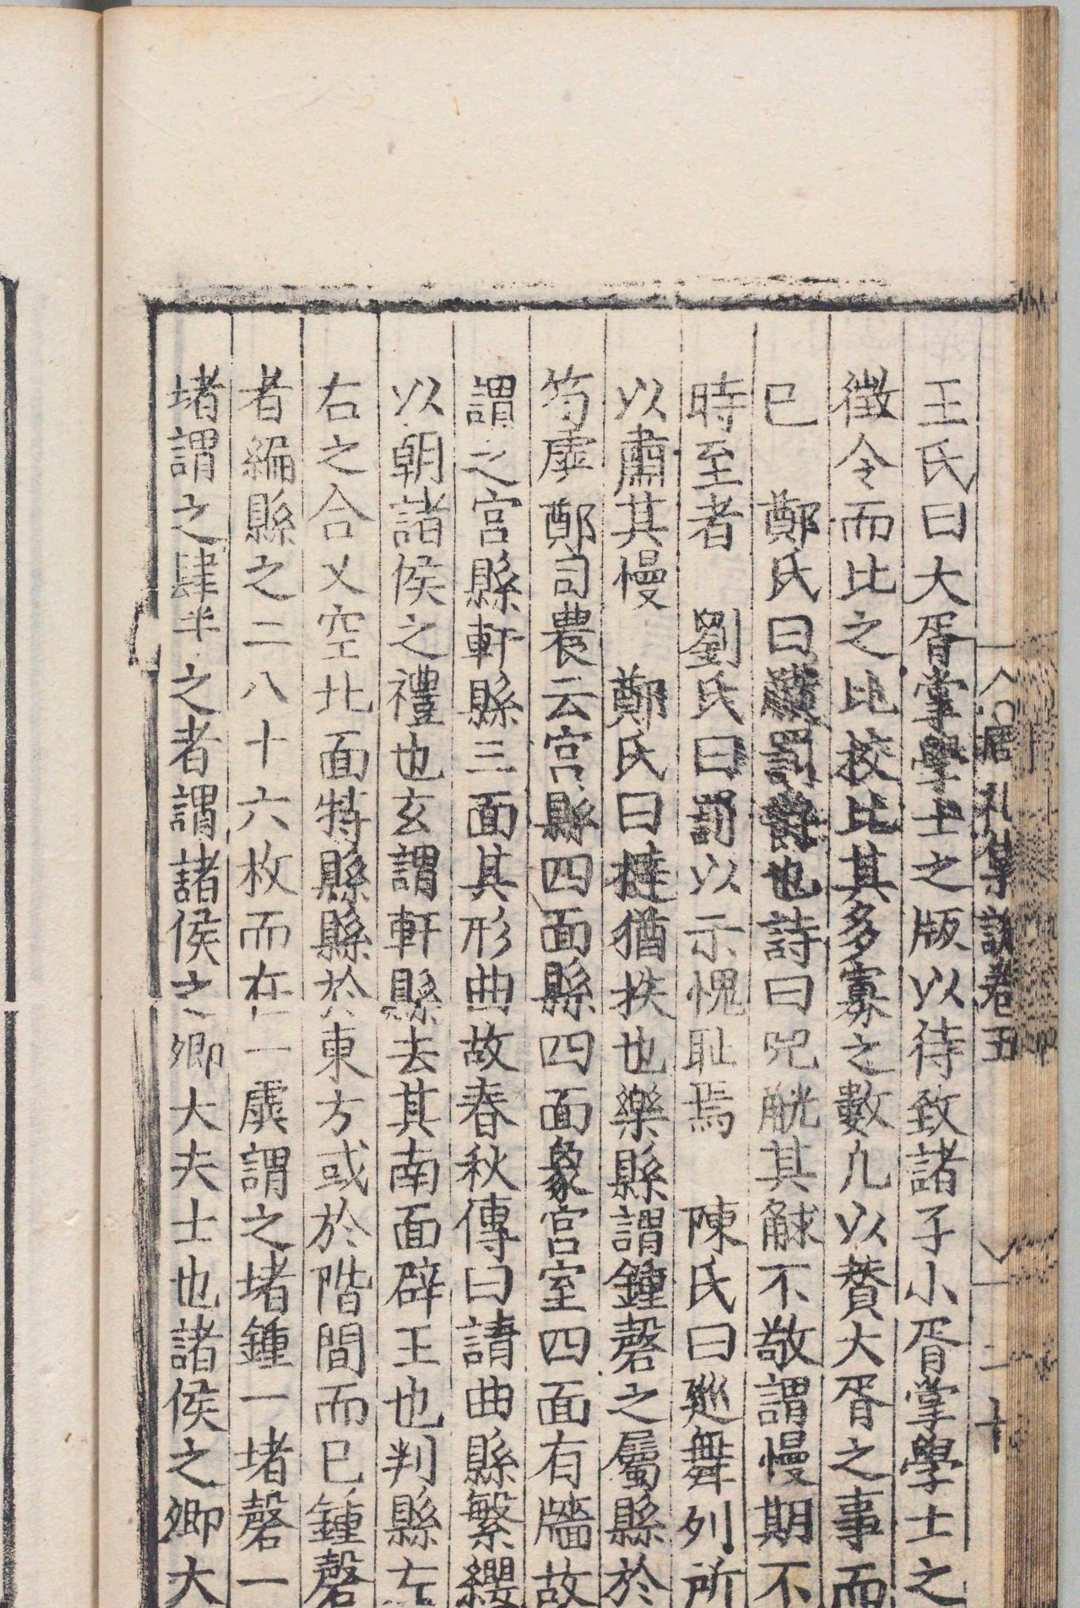 周礼集説卷五 二十
王氏曰大胥掌學士之版以待致諸子小胥掌學士之
徴令而比之比校比其多寡之數凢以賛大胥之事而
已 鄭氏曰觵罰爵也詩曰兕觥其觩不敬謂慢期不
時至者 劉氏曰罰以示愧耻焉 陳氏曰廵舞列所
以肅其慢 鄭氏曰撻猶抶也樂縣謂鍾磬之屬縣於
笱虡鄭司農云宫縣四面縣四面象宫室四面有牆故
謂之宫縣軒縣三面其形曲故春秋傳曰請曲縣繁纓
以朝諸侯之禮也玄謂軒縣去其南面辟王也判縣左
右之合又空北面特縣縣於東方或於階間而已鍾磬
者編縣之二八十六枚而在一虡謂之堵鍾一堵磬一
堵謂之肆半之者謂諸侯之卿大夫士也諸侯之卿大